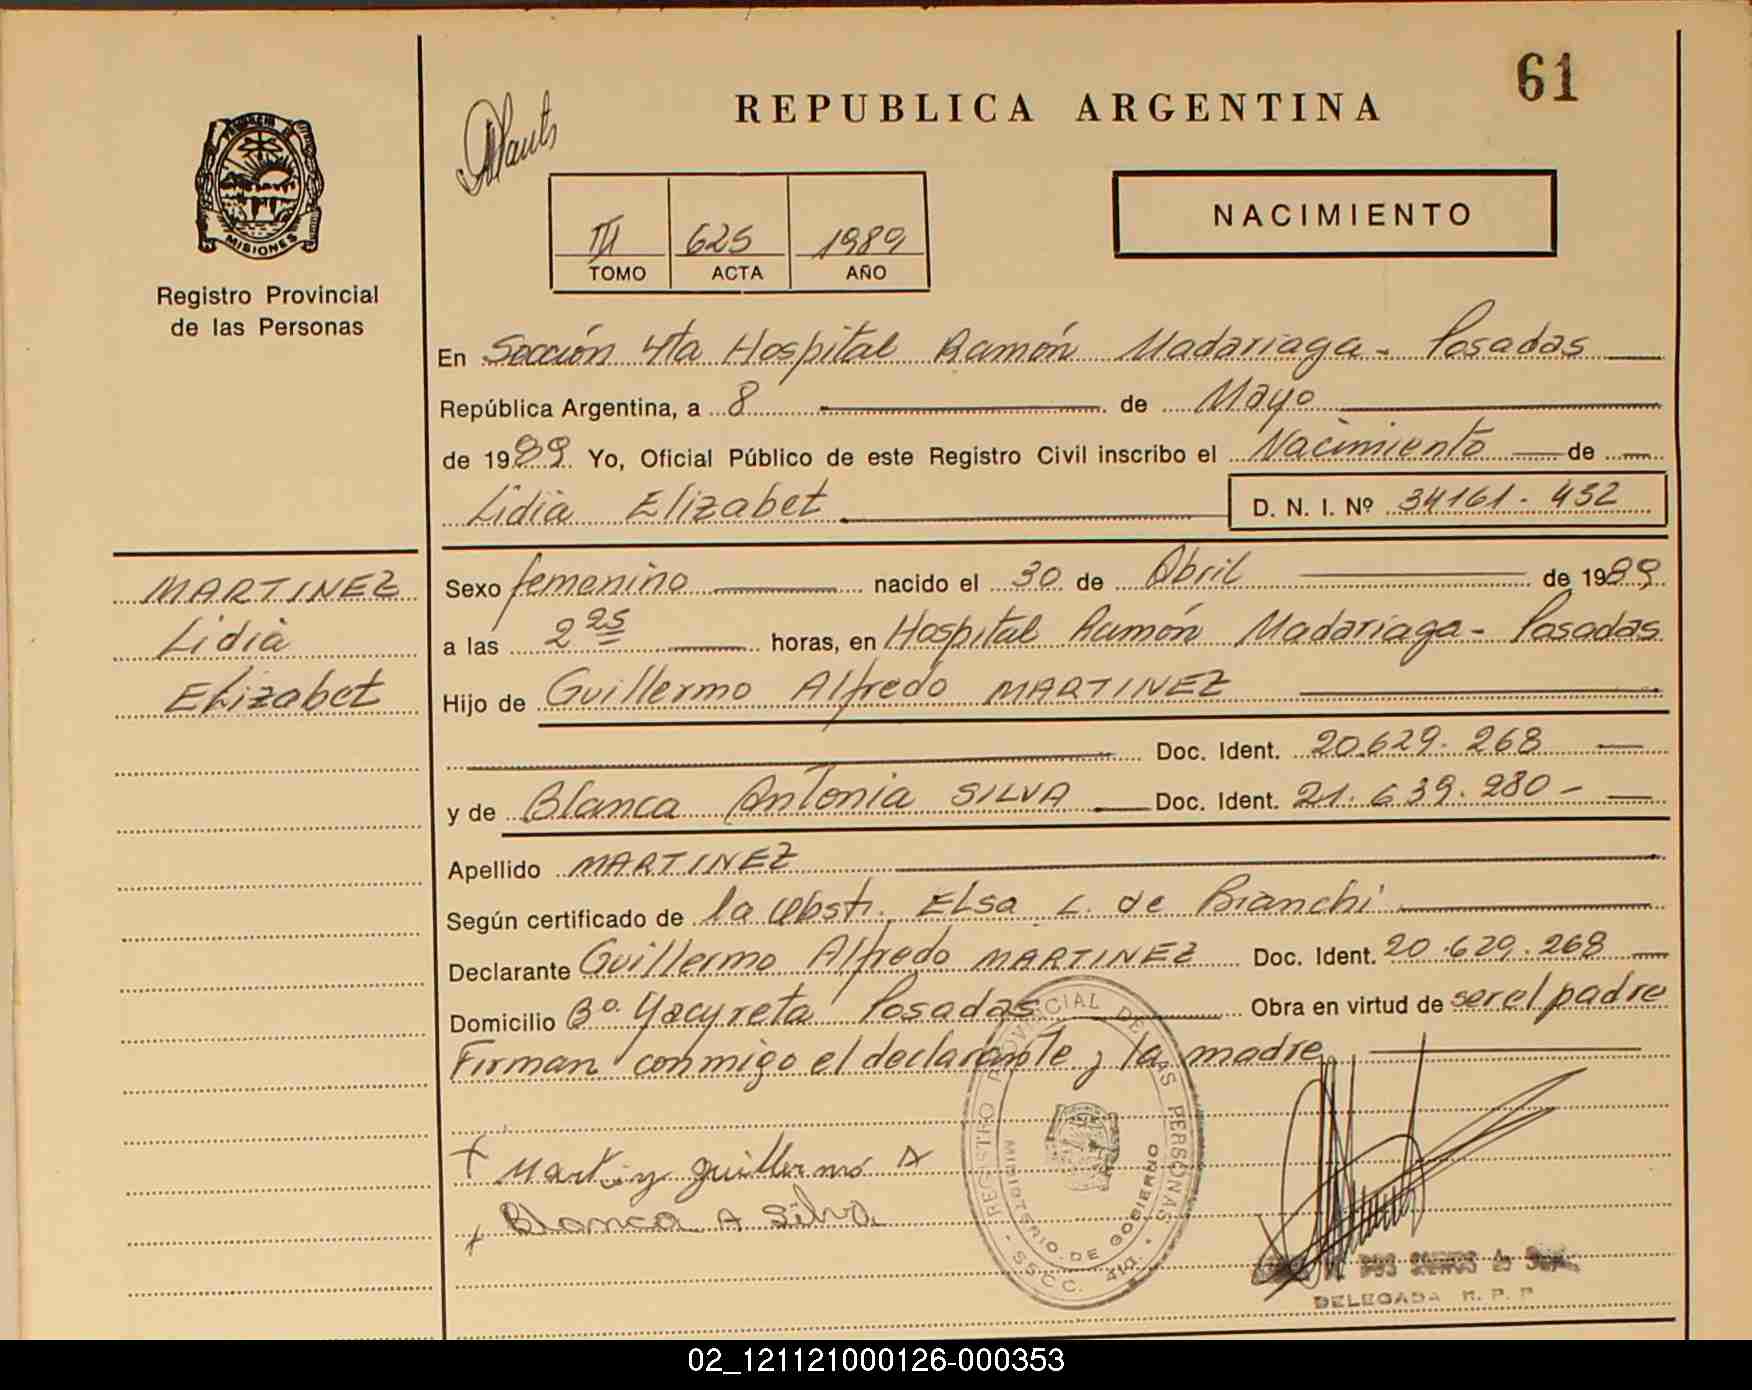 61
REPUBLICA ARGENTINA
PROVINCIA DE
MISIONES
Registro Provincial
de las Personas
NACIMIENTO
III 625 1989
TOMO ACTA AÑO
En Sección 4ta Hospital Ramón Madariaga - Posadas
República Argentina, a 8 de Mayo
de 1989 Yo, Oficial Público de este Registro Civil inscribo el Nacimiento de
Lidia Elizabet D. N. I. Nº 34161.432
MARTINEZ
Lidia
Elizabet
Sexo femenino nacido el 30 de Abril de 1989
a las 2 25 horas, en Hospital Ramón Madariaga - Posadas
Hijo de Guillermo Alfredo MARTINEZ
Doc. Ident. 20.629.268
y de Blanca Antonia SILVA Doc. Ident. 21.639.280 -
Apellido MARTINEZ
Según certificado de la obst. Elsa L. de Bianchi
Declarante Guillermo Alfredo MARTINEZ Doc. Ident. 20.629.268
Domicilio Bº Yacyreta Posadas Obra en virtud de ser el padre
Firman conmigo el declarante y la madre
REGISTRO PROVINCIAL DE LAS PERSONAS
MINISTERIO DE GOBIERNO
SS.CC. 4ta.
+ Martinez Guillermo A
+ Blanca A Silva
DOS SANTOS de
DELEGADA R. P. P.
02_121121000126-000353